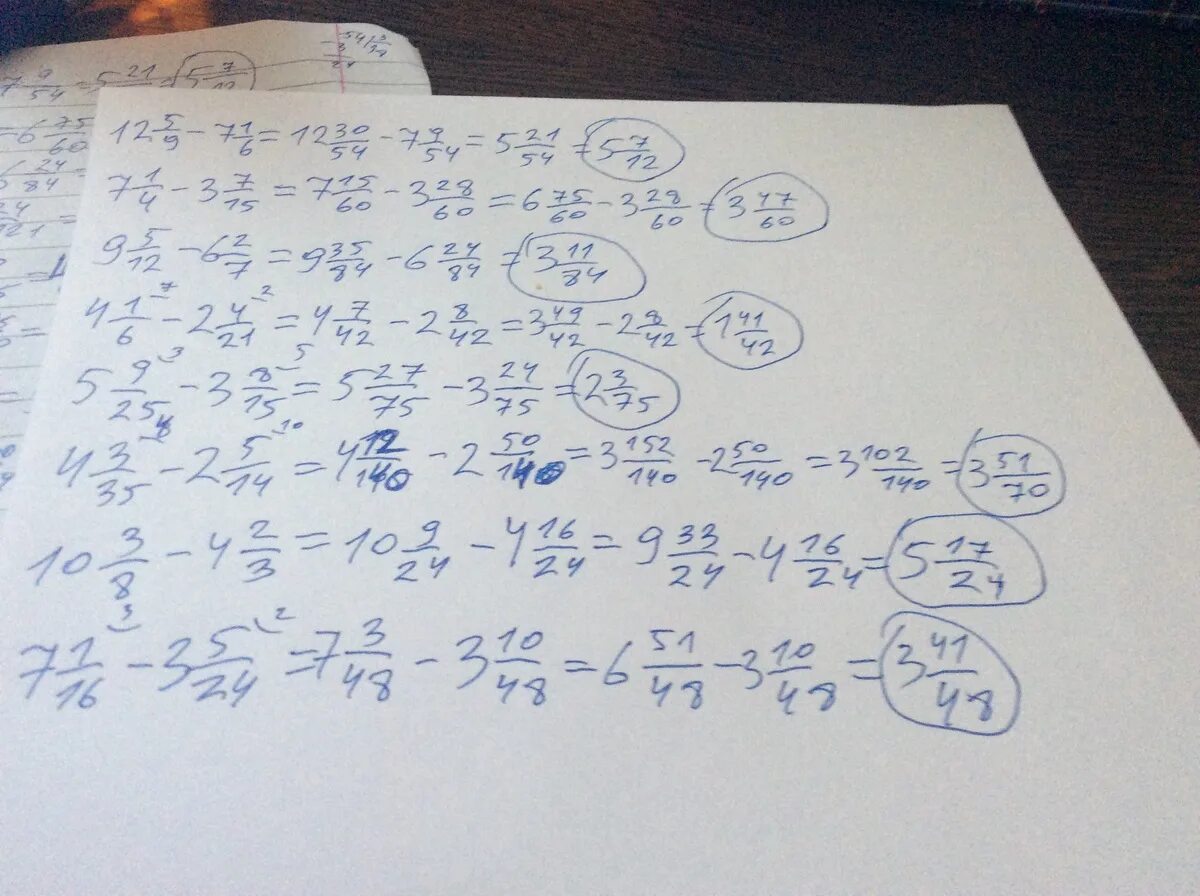 54
3
24
7 9/54 = 5 21 5 7/12
= 6 75/60
24/84 =
12 5/9 - 7 1/6 = 12 30/54 - 7 9/54 = 5 21/54 = 5 7/12
7 1/4 - 3 7/15 = 7 15/60 - 3 28/60 = 6 75/60 - 3 28/60 = 3 47/60
9 5/12 - 6 2/7 = 9 35/84 - 6 24/84 = 3 11/84
4 1/6 7 - 2 4/21 2 = 4 7/42 - 2 8/42 = 3 49/42 - 2 8/42 = 1 41/42
5 9/25 3 - 3 8/15 5 = 5 27/75 - 3 24/75 = 2 3/75
4 3/35 - 2 5/14 10 = 4 12/140 - 2 50/140 = 3 152/140 - 2 50/140 = 3 102/140 = 3 51/70
10 3/8 - 4 2/3 = 10 9/24 - 4 16/24 = 9 33/24 - 4 16/24 = 5 17/24
7 1/16 3 - 3 5/24 2 = 7 3/48 - 3 10/48 = 6 51/48 - 3 10/48 = 3 41/48